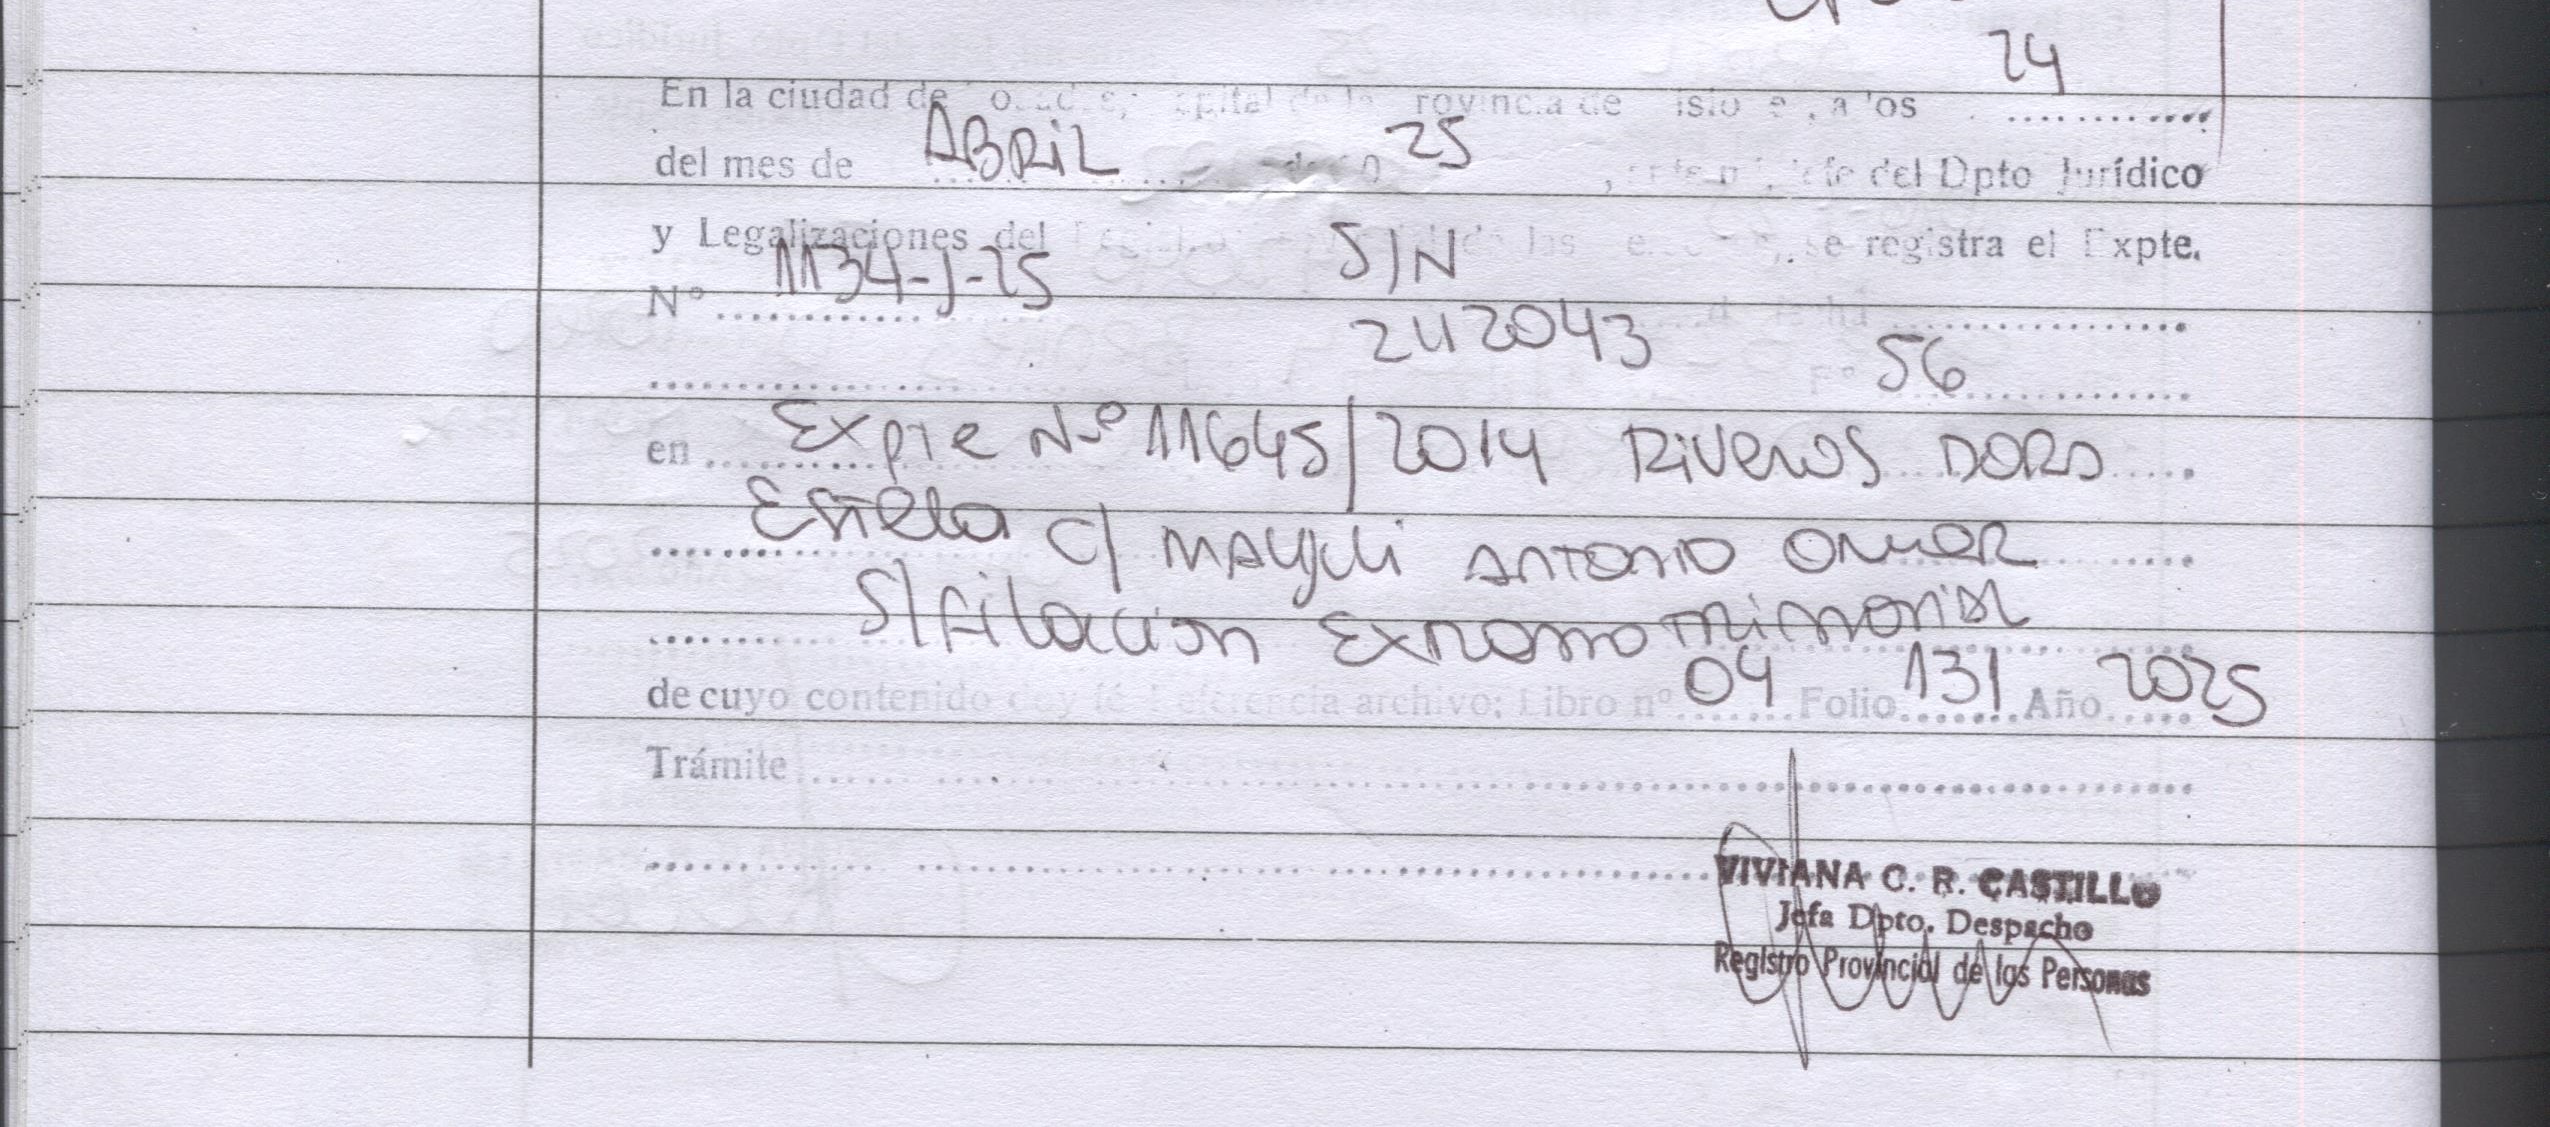 24
En la ciudad de a los ..........
del mes de ABRIL 25 del Dpto Jurídico
y Legalizaciones del S/N se registra el Expte.
Nº 1134-J-25
242043 56
en Expte Nº 11645/2014 Riveros DORA
Estela C/ ANTONIO OMAR
S/ Filacion Extramatrimonial
de cuyo contenido doy fé Referencia archivo: Libro nº 04 Folio 131 Año 2025
Trámite
VIVIANA C. R. CASTILLO
Jefa Dpto. Despacho
Registro Provincial de las Personas